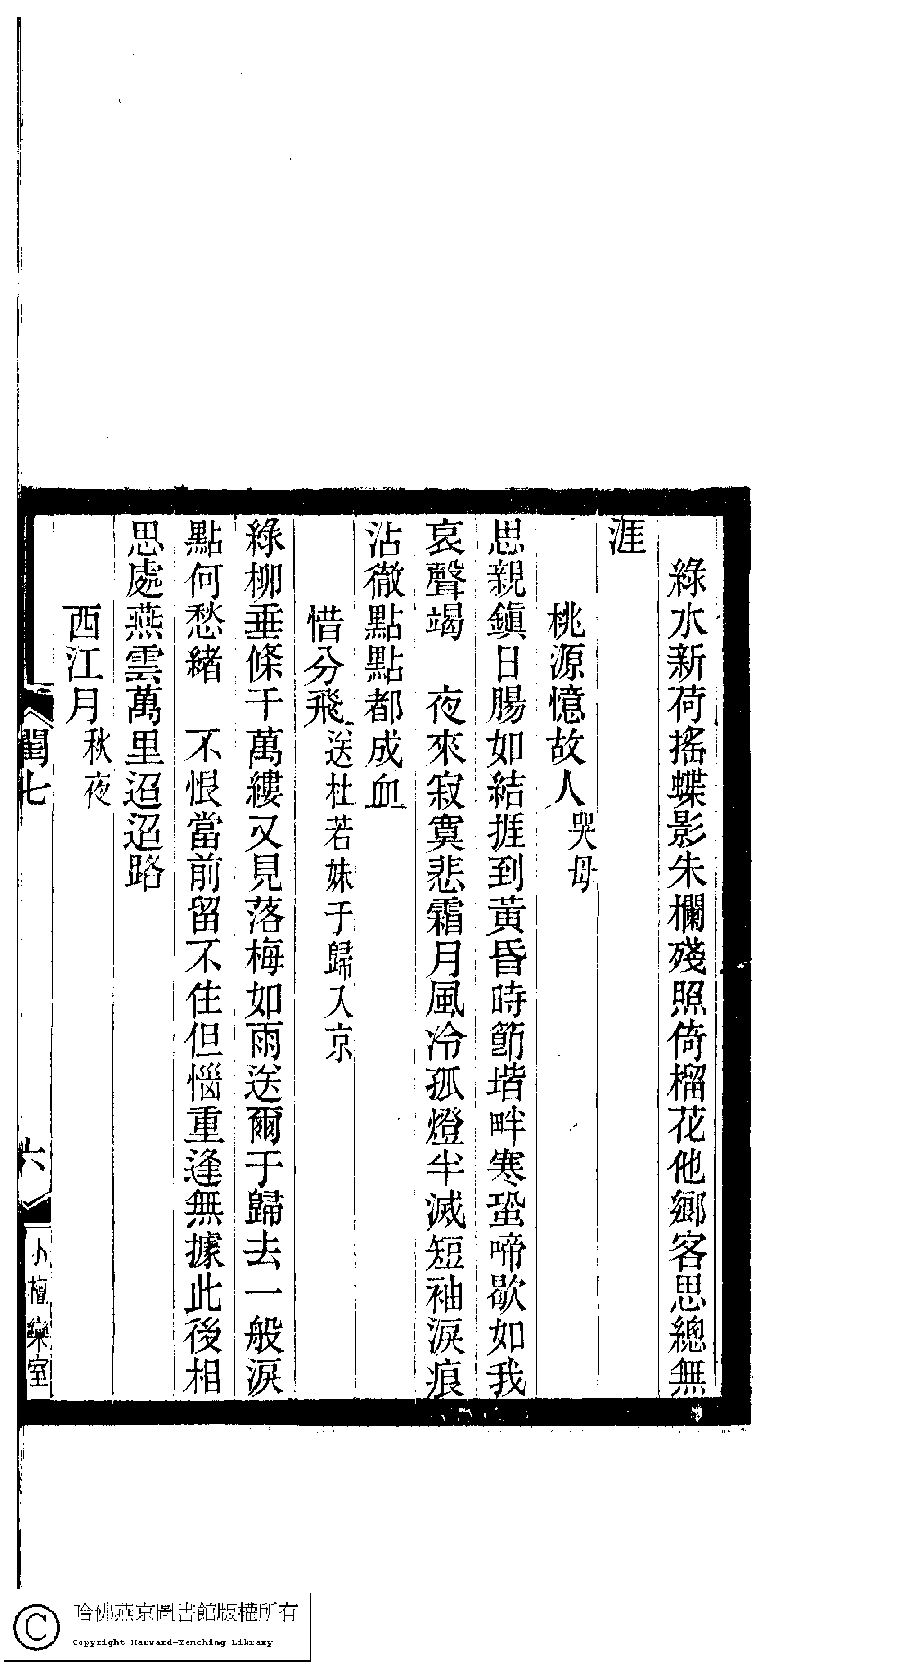 綠水新荷搖蝶影朱欄殘照倚榴花他鄉客思總無
涯
桃源憶故人 哭母
思親鎮日腸如結捱到黃昏時節堦畔寒蛩啼歇如我
哀聲竭　夜來寂寞悲霜月風冷孤燈半滅短袖淚痕
沾徹點點都成血
惜分飛 送杜若妹于歸入京
綠柳垂條千萬縷又見落梅如雨送爾于歸去一般淚
點何愁緒　不恨當前留不住但惱重逢無據此後相
思處燕雲萬里迢迢路
西江月 秋夜
閨七
六
小檀欒室
哈佛燕京圖書館版權所有
Copyright Harvard-Yenching Library